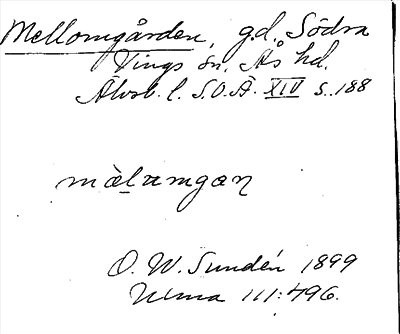 Mellomgården, gd. Södra
Vings sn, Ås hd.
Älvsb. l. S.O.Ä. XIV s. 188
mɑ̀l̠ɑmgɑn
O. W. Sundén 1899
Ulma 111:496.